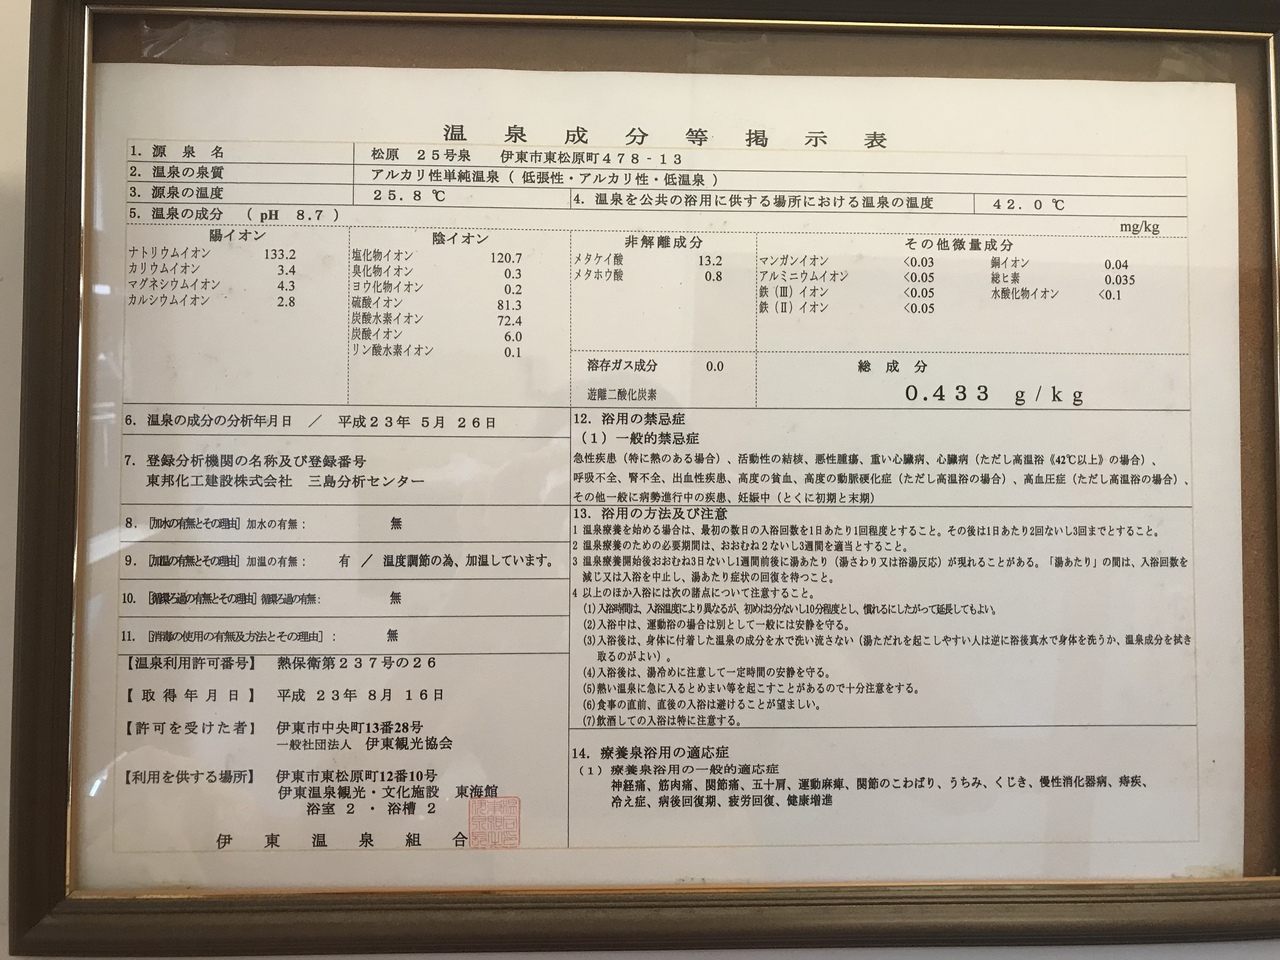 温泉成分等掲示表
1. 源泉名 松原 25号泉 伊東市東松原町478-13
2. 温泉の泉質 アルカリ性単純温泉 ( 低張性・アルカリ性・低温泉 )
3. 源泉の温度 25.8 ℃ 4. 温泉を公共の浴用に供する場所における温泉の温度 42.0 ℃
5. 温泉の成分 ( pH 8.7 ) mg/kg
陽イオン
ナトリウムイオン 133.2
カリウムイオン 3.4
マグネシウムイオン 4.3
カルシウムイオン 2.8
陰イオン
塩化物イオン 120.7
臭化物イオン 0.3
ヨウ化物イオン 0.2
硫酸イオン 81.3
炭酸水素イオン 72.4
炭酸イオン 6.0
リン酸水素イオン 0.1
非解離成分
メタケイ酸 13.2
メタホウ酸 0.8
その他微量成分
マンガンイオン <0.03 銅イオン 0.04
アルミニウムイオン <0.05 総ヒ素 0.035
鉄(Ⅲ)イオン <0.05 水酸化物イオン <0.1
鉄(Ⅱ)イオン <0.05
溶存ガス成分 0.0
遊離二酸化炭素
総成分
0.433 g/kg
6. 温泉の成分の分析年月日 / 平成23年 5月 26日
7. 登録分析機関の名称及び登録番号
東邦化工建設株式会社 三島分析センター
8. [加水の有無とその理由] 加水の有無: 無
9. [加温の有無とその理由] 加温の有無: 有 / 温度調節の為、加温しています。
10. [循環ろ過の有無とその理由] 循環ろ過の有無: 無
11. [消毒の使用の有無及方法とその理由]: 無
【温泉利用許可番号】 熱保衛第237号の26
【取得年月日】 平成 23年 8月 16日
【許可を受けた者】 伊東市中央町13番28号
一般社団法人 伊東観光協会
【利用を供する場所】 伊東市東松原町12番10号
伊東温泉観光・文化施設 東海館
浴室 2・浴槽 2
伊東温泉組合
12. 浴用の禁忌症
(1)一般的禁忌症
急性疾患(特に熱のある場合)、活動性の結核、悪性腫瘍、重い心臓病、心臓病(ただし高温浴《42℃以上》の場合)、
呼吸不全、腎不全、出血性疾患、高度の貧血、高度の動脈硬化症(ただし高温浴の場合)、高血圧症(ただし高温浴の場合)、
その他一般に病勢進行中の疾患、妊娠中(とくに初期と末期)
13. 浴用の方法及び注意
1 温泉療養を始める場合は、最初の数日の入浴回数を1日あたり1回程度とすること。その後は1日あたり2回ないし3回までとすること。
2 温泉療養のための必要期間は、おおむね2ないし3週間を適当とすること。
3 温泉療養開始後おおむね3日ないし1週間前後に湯あたり(湯さわり又は浴湯反応)が現れることがある。「湯あたり」の間は、入浴回数を
減じ又は入浴を中止し、湯あたり症状の回復を待つこと。
4 以上のほか入浴には次の諸点について注意すること。
(1)入浴時間は、入浴温度により異なるが、初めは3分ないし10分程度とし、慣れるにしたがって延長してもよい。
(2)入浴中は、運動浴の場合は別として一般には安静を守る。
(3)入浴後は、身体に付着した温泉の成分を水で洗い流さない(湯ただれを起こしやすい人は逆に浴後真水で身体を洗うか、温泉成分を拭き
取るのがよい)。
(4)入浴後は、湯冷めに注意して一定時間の安静を守る。
(5)熱い温泉に急に入るとめまい等を起こすことがあるので十分注意をする。
(6)食事の直前、直後の入浴は避けることが望ましい。
(7)飲酒しての入浴は特に注意する。
14. 療養泉浴用の適応症
(1)療養泉浴用の一般的適応症
神経痛、筋肉痛、関節痛、五十肩、運動麻痺、関節のこわばり、うちみ、くじき、慢性消化器病、痔疾、
冷え症、病後回復期、疲労回復、健康増進